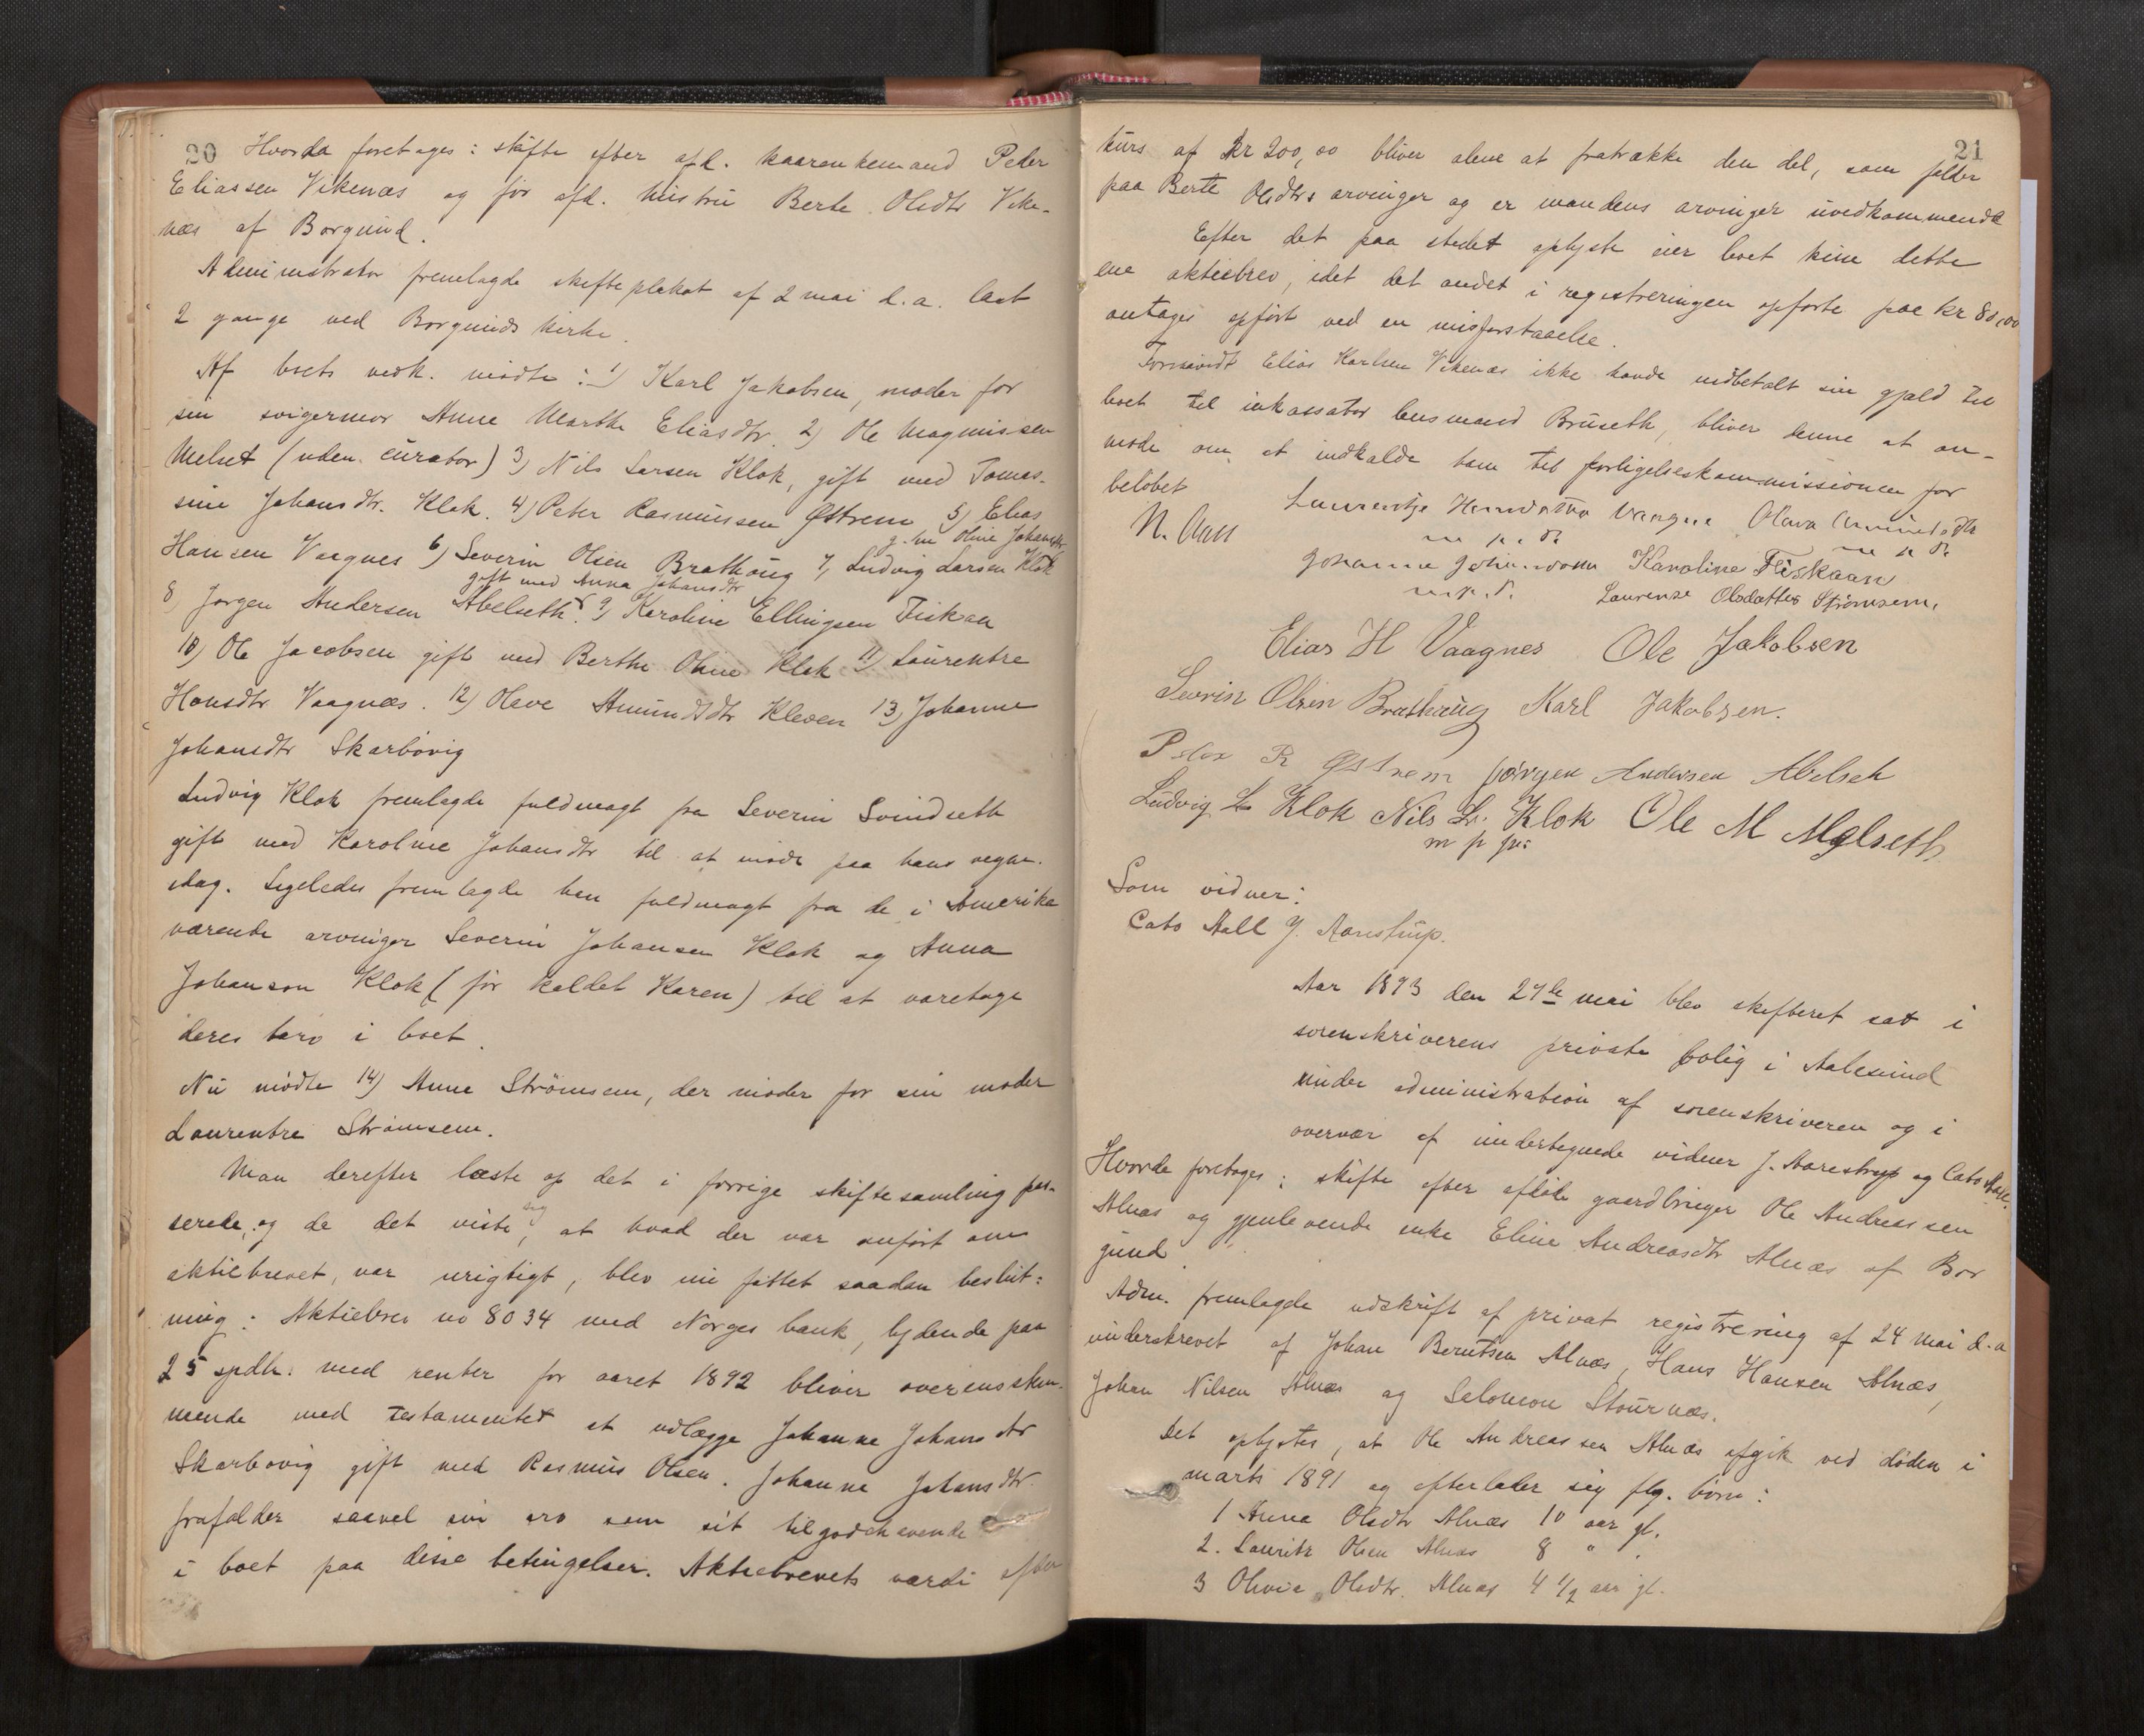 20
Hvorda foretoges: skifte efter afd. kaarenkemand Peder
Eliassen Vikenæs og før afd. hustru Berte Olsdtr Vike-
næs af Borgund.
Administrator fremlagde skifteplakat af 2 mai d.a. læst
2 gange ved Borgunds kirke.
Af boets vedk. mødte: 1) Karl Jakobsen, møder for
sin svigermor Anne Marthe Eliasdtr. 2) Ole Magnussen
Melset (uden curator) 3) Nils Larsen Klok, gift med Tomas-
sine Johansdtr. Klok. 4) Peter Rasmussen Østrem 5) Elias
g. m. Oline Johansdtr
Hansen Vaagnes 6) Severin Olsen Brathaug 7) Ludvig Larsen Klok
gift med Anna Johansdtr
8) Jørgen Andersen Abelseth. 9) Karoline Ellingsen Fiskaa
10) Ole Jacobsen gift med Berthe Oline Klok 11) Laurentse
Hansdtr Vaagnæs. 12) Olave Amundsdtr Kleven 13) Johanne
Johansdtr Skarbøvig
Ludvig Klok fremlagde fuldmagt fra Severin Svindseth
gift med Karoline Johansdtr til at møde paa hans vegne
idag. Ligeledes fremlagde han fuldmagt fra de i Amerika
værende arvinger Severin Johansen Klok og Anna
Johanson Klok (før kaldet Karen) til at varetage
deres tarv i boet.
Nu mødte 14) Anne Strömsem, der møder for sin moder
Laurentse Strömsem.
Man derefter læste op det i forrige skiftesamling pas-
serede, og da det viste sig, at hvad der var anført om
aktiebrevet, var urigtigt, blev nu fattet saadan beslut:
ning: Aktiebrev no 8034 med Norges bank, lydende paa
25 spdlr. med renter for aaret 1892 bliver overensstem-
mende med testamentet at udlægge Johanne Johansdtr
Skarbøvig gift med Rasmus Olsen. Johanne Johansdtr.
frafalder saavel sin arv som sit tilgodehavende
i boet paa disse betingelser. Aktiebrevets værdi efter
21
kurs af kr 200,00 bliver alene at fratrække den del, som falder
paa Berte Olsdtrs arvinger og er mandens arvinger uvedkommende
Efter det paa stedet oplyste eier boet kun dette
ene aktiebrev, idet det andet i registreringen opførte paa kr 80,00
antages opført ved en misforstaaelse.
Forsaavidt Elias Karlsen Vikenæs ikke havde indbetalt sin gjæld til
boet til inkassator lensmand Bruseth, bliver denne at an-
mode om at indkalde ham til forligelseskommissionen for
beløbet
N. Aall
Laurentse Hansdatter Vaagnes Olava Amundsdtr
m p. P. m p P.
Johanna Johansdatter Karoline Fiskaan
m. p. P. Laurense Olsdatter Strömsem.
Elias H Vaagnes Ole Jakobsen
Sevrin Olsen Brathaug Karl Jakobsen.
Peter R Østrem Jørgen Andersen Abelseth
Ludvig L Klok Nils L. Klok Ole M Melseth
m p P.
Som vidner:
Cato Aall J. Aarestrup.
Aar 1893 den 27de mai blev skifteret sat i
sorenskriverens private bolig i Aalesund
under administration af sorenskriveren og i
overvær af undertegnede vidner J. Aarestrup og Cato Aall.
Hvorda foretoges: skifte efter afdøde gaardbruger Ole Andreassen
Alnæs og gjenlevende enke Eline Andreasdtr Alnæs af Bor
gund.
Adm. fremlagde udskrift af privat registrering af 24 mai d.a
underskrevet af Johan Berntsen Alnæs, Hans Hansen Alnæs,
Johan Nilsen Alnæs og Salomon Stournæs.
Det oplystes, at Ole Andreassen Alnæs afgik ved døden i
marts 1891 og efterlader sig flg. børn:
1 Anna Olsdtr Alnæs 10 aar gl.
2. Lauritz Olsen Alnæs 8 " "
3 Olivia Olsdtr. Alnæs 4 1/2 aar gl.